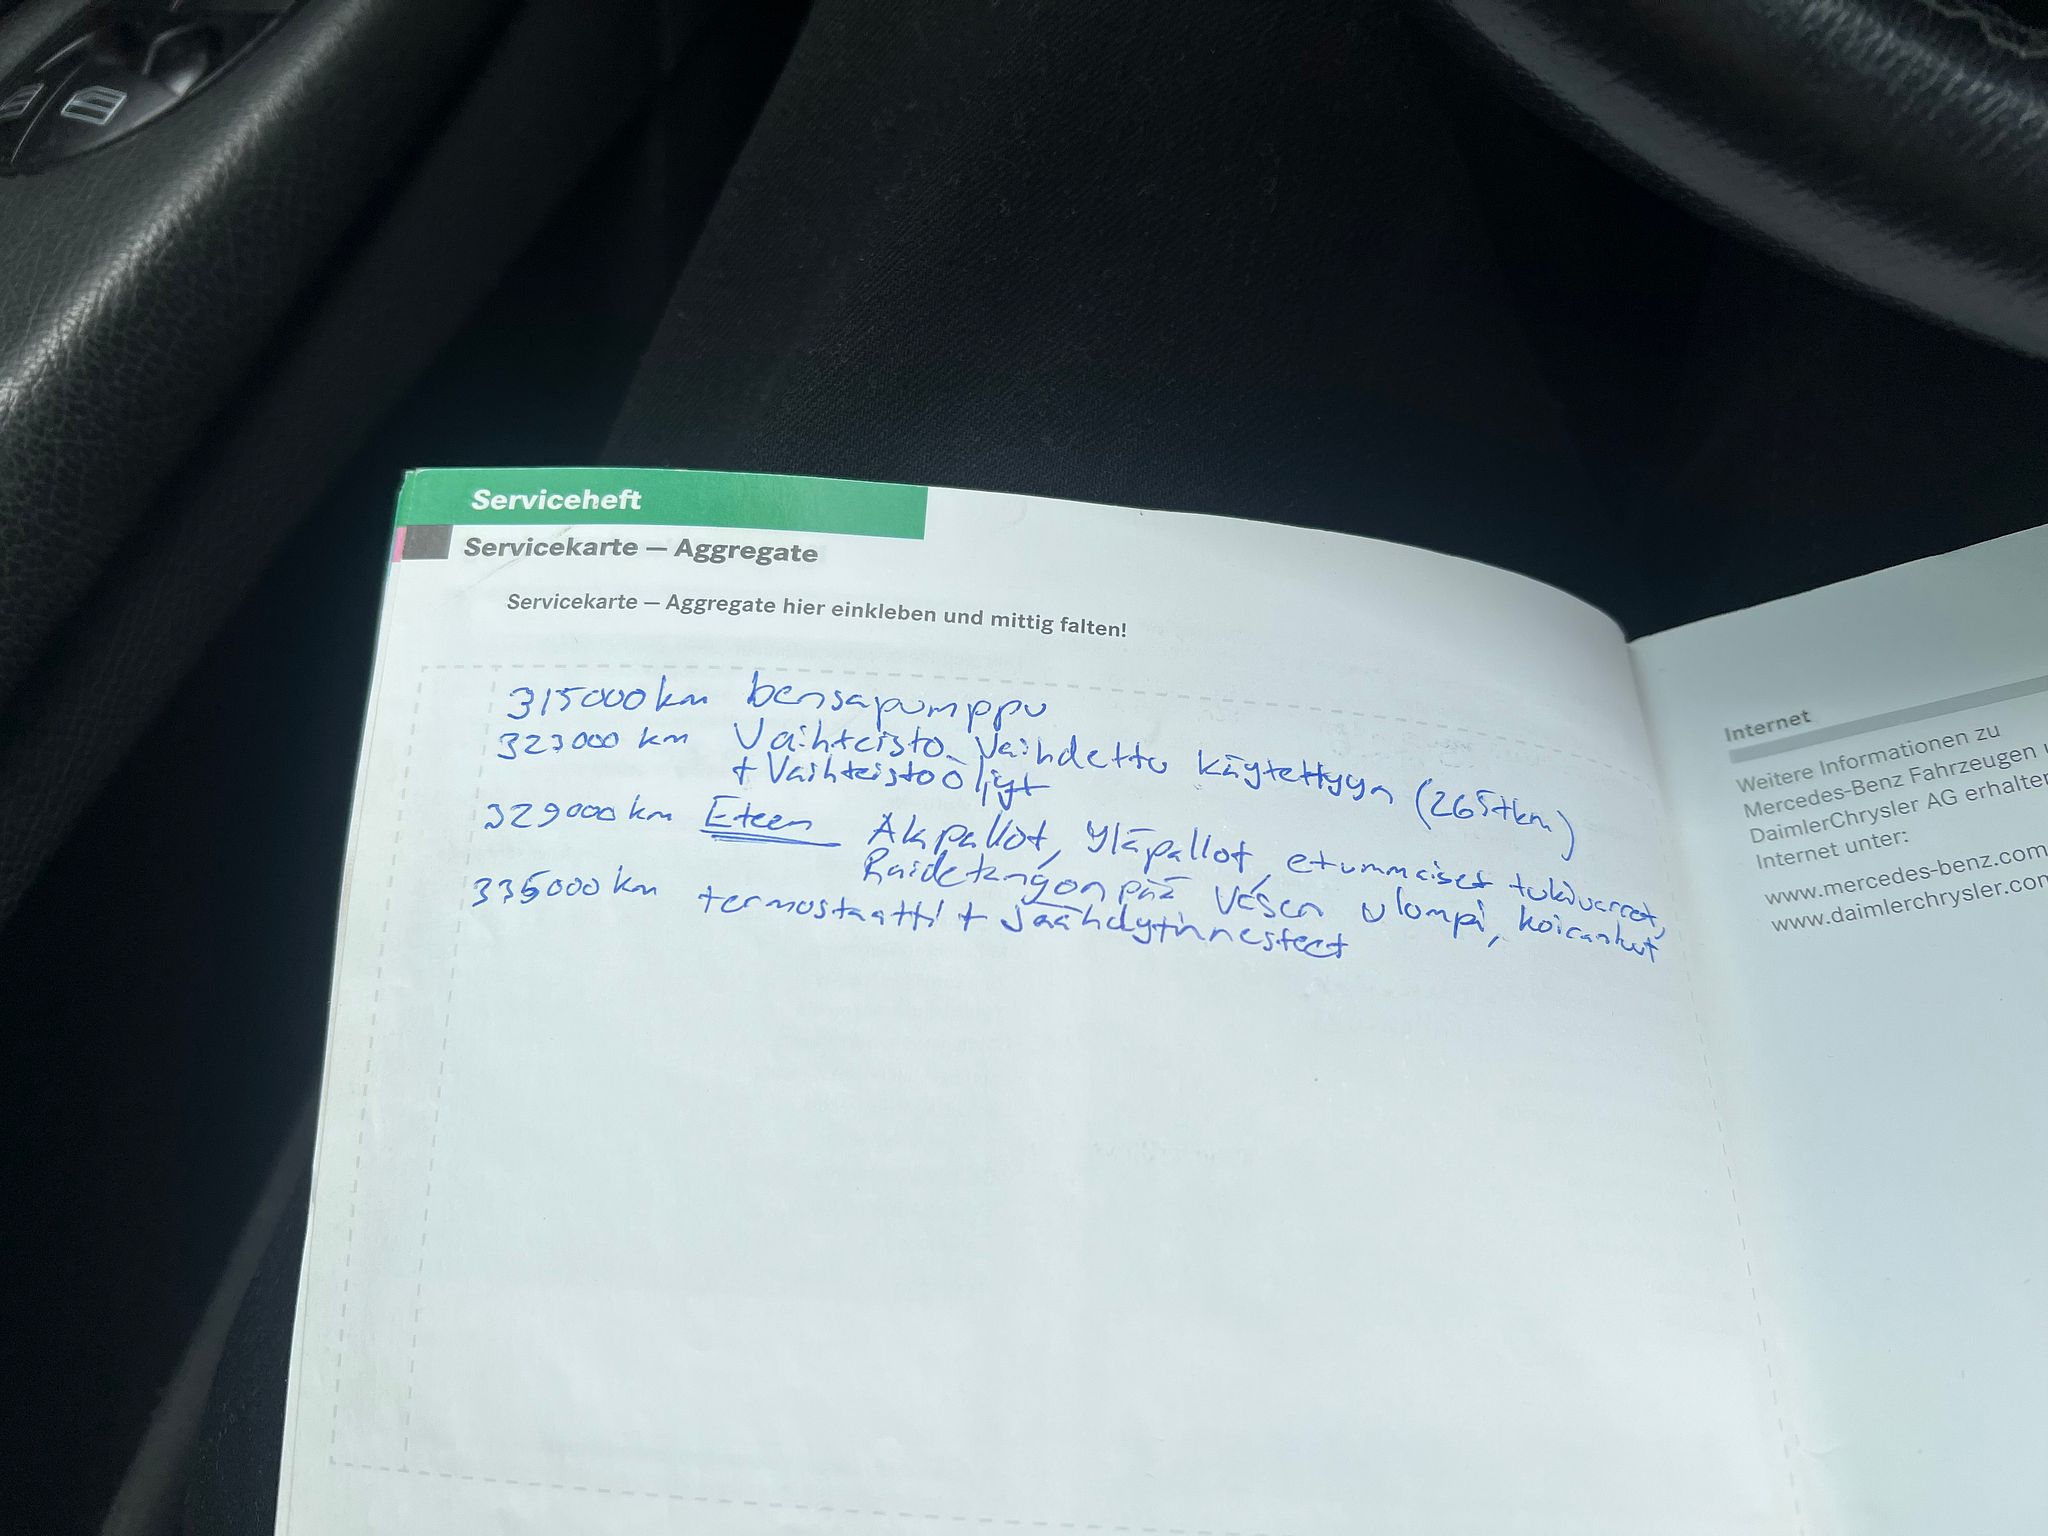 Serviceheft
Servicekarte — Aggregate
Servicekarte — Aggregate hier einkleben und mittig falten!
315000 km bensapumppu
323000 km Vaihteisto vaihdettu käytettyyn (265tkm)
+ Vaihteistoöljyt
329000 km Eteen Alapallot, Yläpallot, etummaiset tukivarret,
Raidetangon pää Vasen ulompi, koiranluut
335000 km termostaatti + jäähdytinnesteet
Internet
Weitere Informationen zu
Mercedes-Benz Fahrzeugen
DaimlerChrysler AG erhalten
Internet unter:
www.mercedes-benz.com
www.daimlerchrysler.com